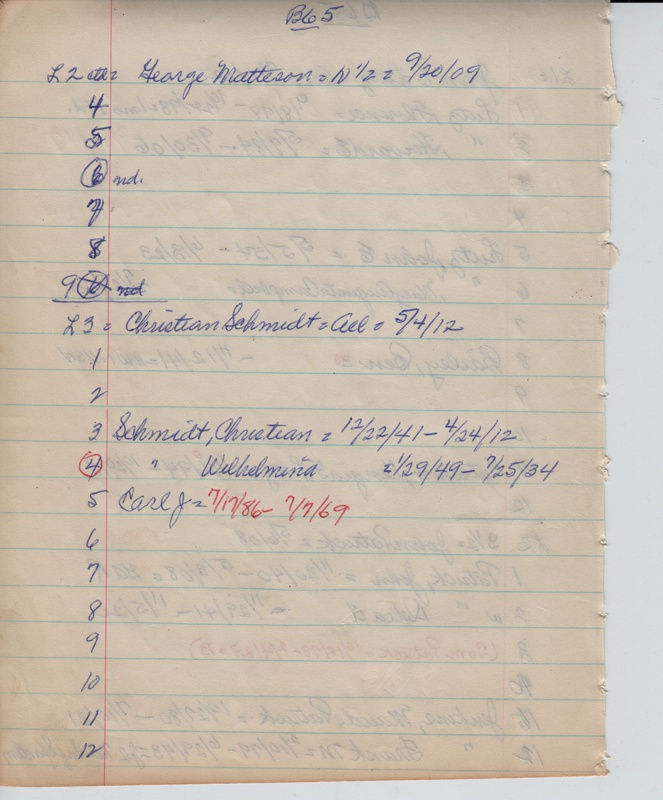 B65
L2 = George Matteson = N 1/2 = 9/20/09
4
5
6 nd.
7
8
9 nd
L3 = Christian Schmidt = all = 5/4/12
1
2
3 Schmidt, Christian = 12/22/41 - 4/24/12
4 " Wilhelmina = 1/29/49 - 7/25/34
5 Carl J = 7/17/86 - 7/7/69
6
7
8
9
10
11
12